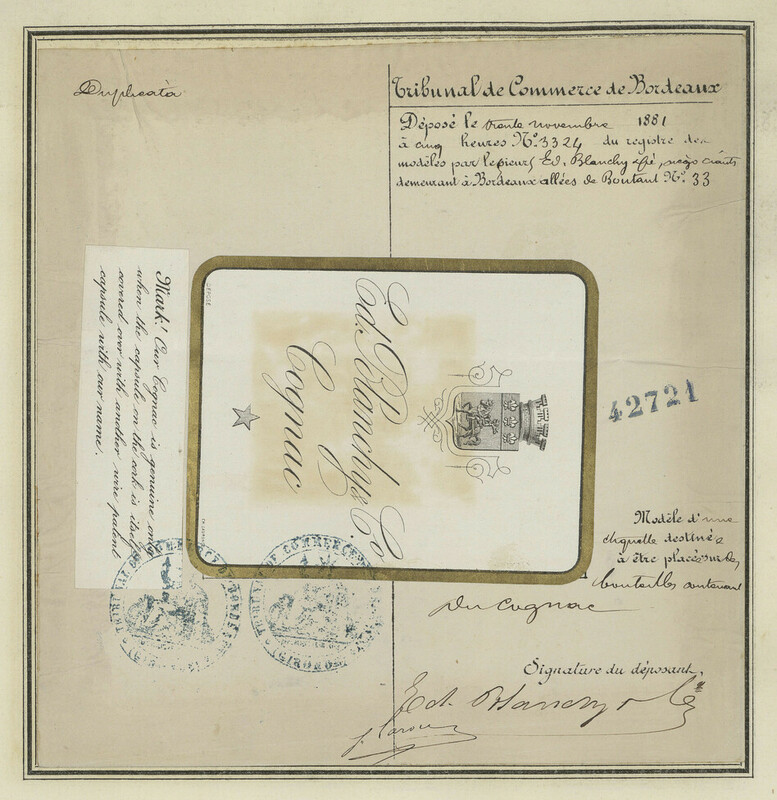 Duplicata
Tribunal de Commerce de Bordeaux
Déposé le trente novembre 1881
à cinq heures No. 3324 du registre des
modèles par les sieurs Ed. Blanchy &
demeurant à Bordeaux allées de Boutaut No. 33
Mark! Our Cognac is genuine only
when the capsule on the cork is itself
covered over with another wire patent
capsule with our name.
DÉPOSÉ
Ed. Blanchy & Co.
Cognac
42721
Modèle d'une
étiquette destinée
à être placée sur des
bouteilles contenant
du Cognac
TRIBUNAL DE COMMERCE DE BORDEAUX
(GIRONDE)
TRIBUNAL DE COMMERCE
(GIRONDE)
Signature du déposant,
Ed. Blanchy & Cie